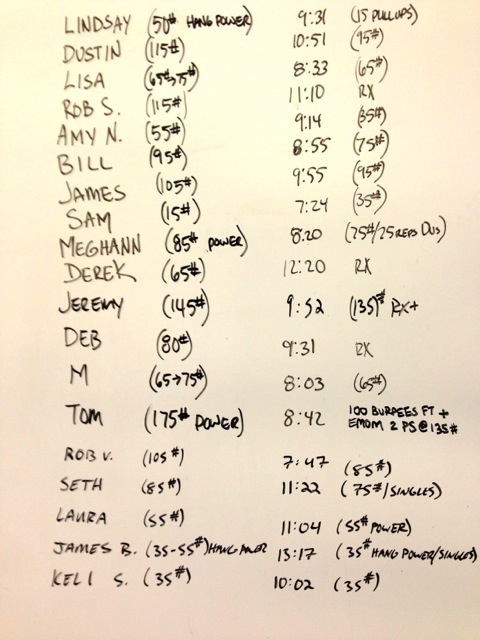 LINDSAY (50# HANG POWER) 9:31 (15 PULLUPS)
DUSTIN (115#) 10:51 (95#)
LISA (65#→75#) 8:33 (65#)
ROB S. (115#) 11:10 RX
AMY N. (55#) 9:14 (35#)
BILL (95#) 8:55 (75#)
JAMES (105#) 9:55 (95#)
SAM (15#) 7:24 (35#)
MEGHANN (85# POWER) 8:20 (75#/25 REPS DUs)
DEREK (65#) 12:20 RX
JEREMY (145#) 9:52 (135)# RX+
DEB (80#) 9:31 RX
M (65→75#) 8:03 (65#)
TOM (175# POWER) 8:42 100 BURPEES FT +
EMOM 2 PS@135#
ROB V. (105#) 7:47 (85#)
SETH (85#) 11:22 (75#/SINGLES)
LAURA (55#) 11:04 (55# POWER)
JAMES B. (35-55#) HANG POWER 13:17 (35# HANG POWER/SINGLES)
KELI S. (35#) 10:02 (35#)